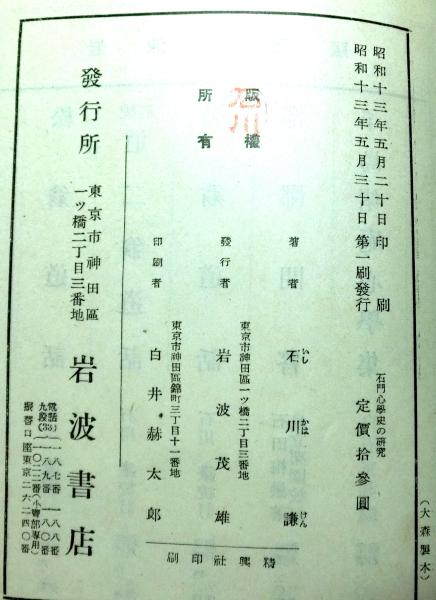 昭和十三年五月二十日印刷
昭和十三年五月三十日第一刷發行
石門心學史の研究
定價拾參圓
版權
所有
著者 石川謙
いし かは けん
東京市神田區一ツ橋二丁目三番地
發行者 岩波茂雄
東京市神田區錦町三丁目十一番地
印刷者 白井赫太郎
精興社印刷
發行所
東京市神田區
一ツ橋二丁目三番地
岩波書店
電話
九段(33)
一八七番 一八八番
一八九番 一八〇番
一〇二二番(小賣部專用)
振替口座東京二六二四〇番
(大森製本)